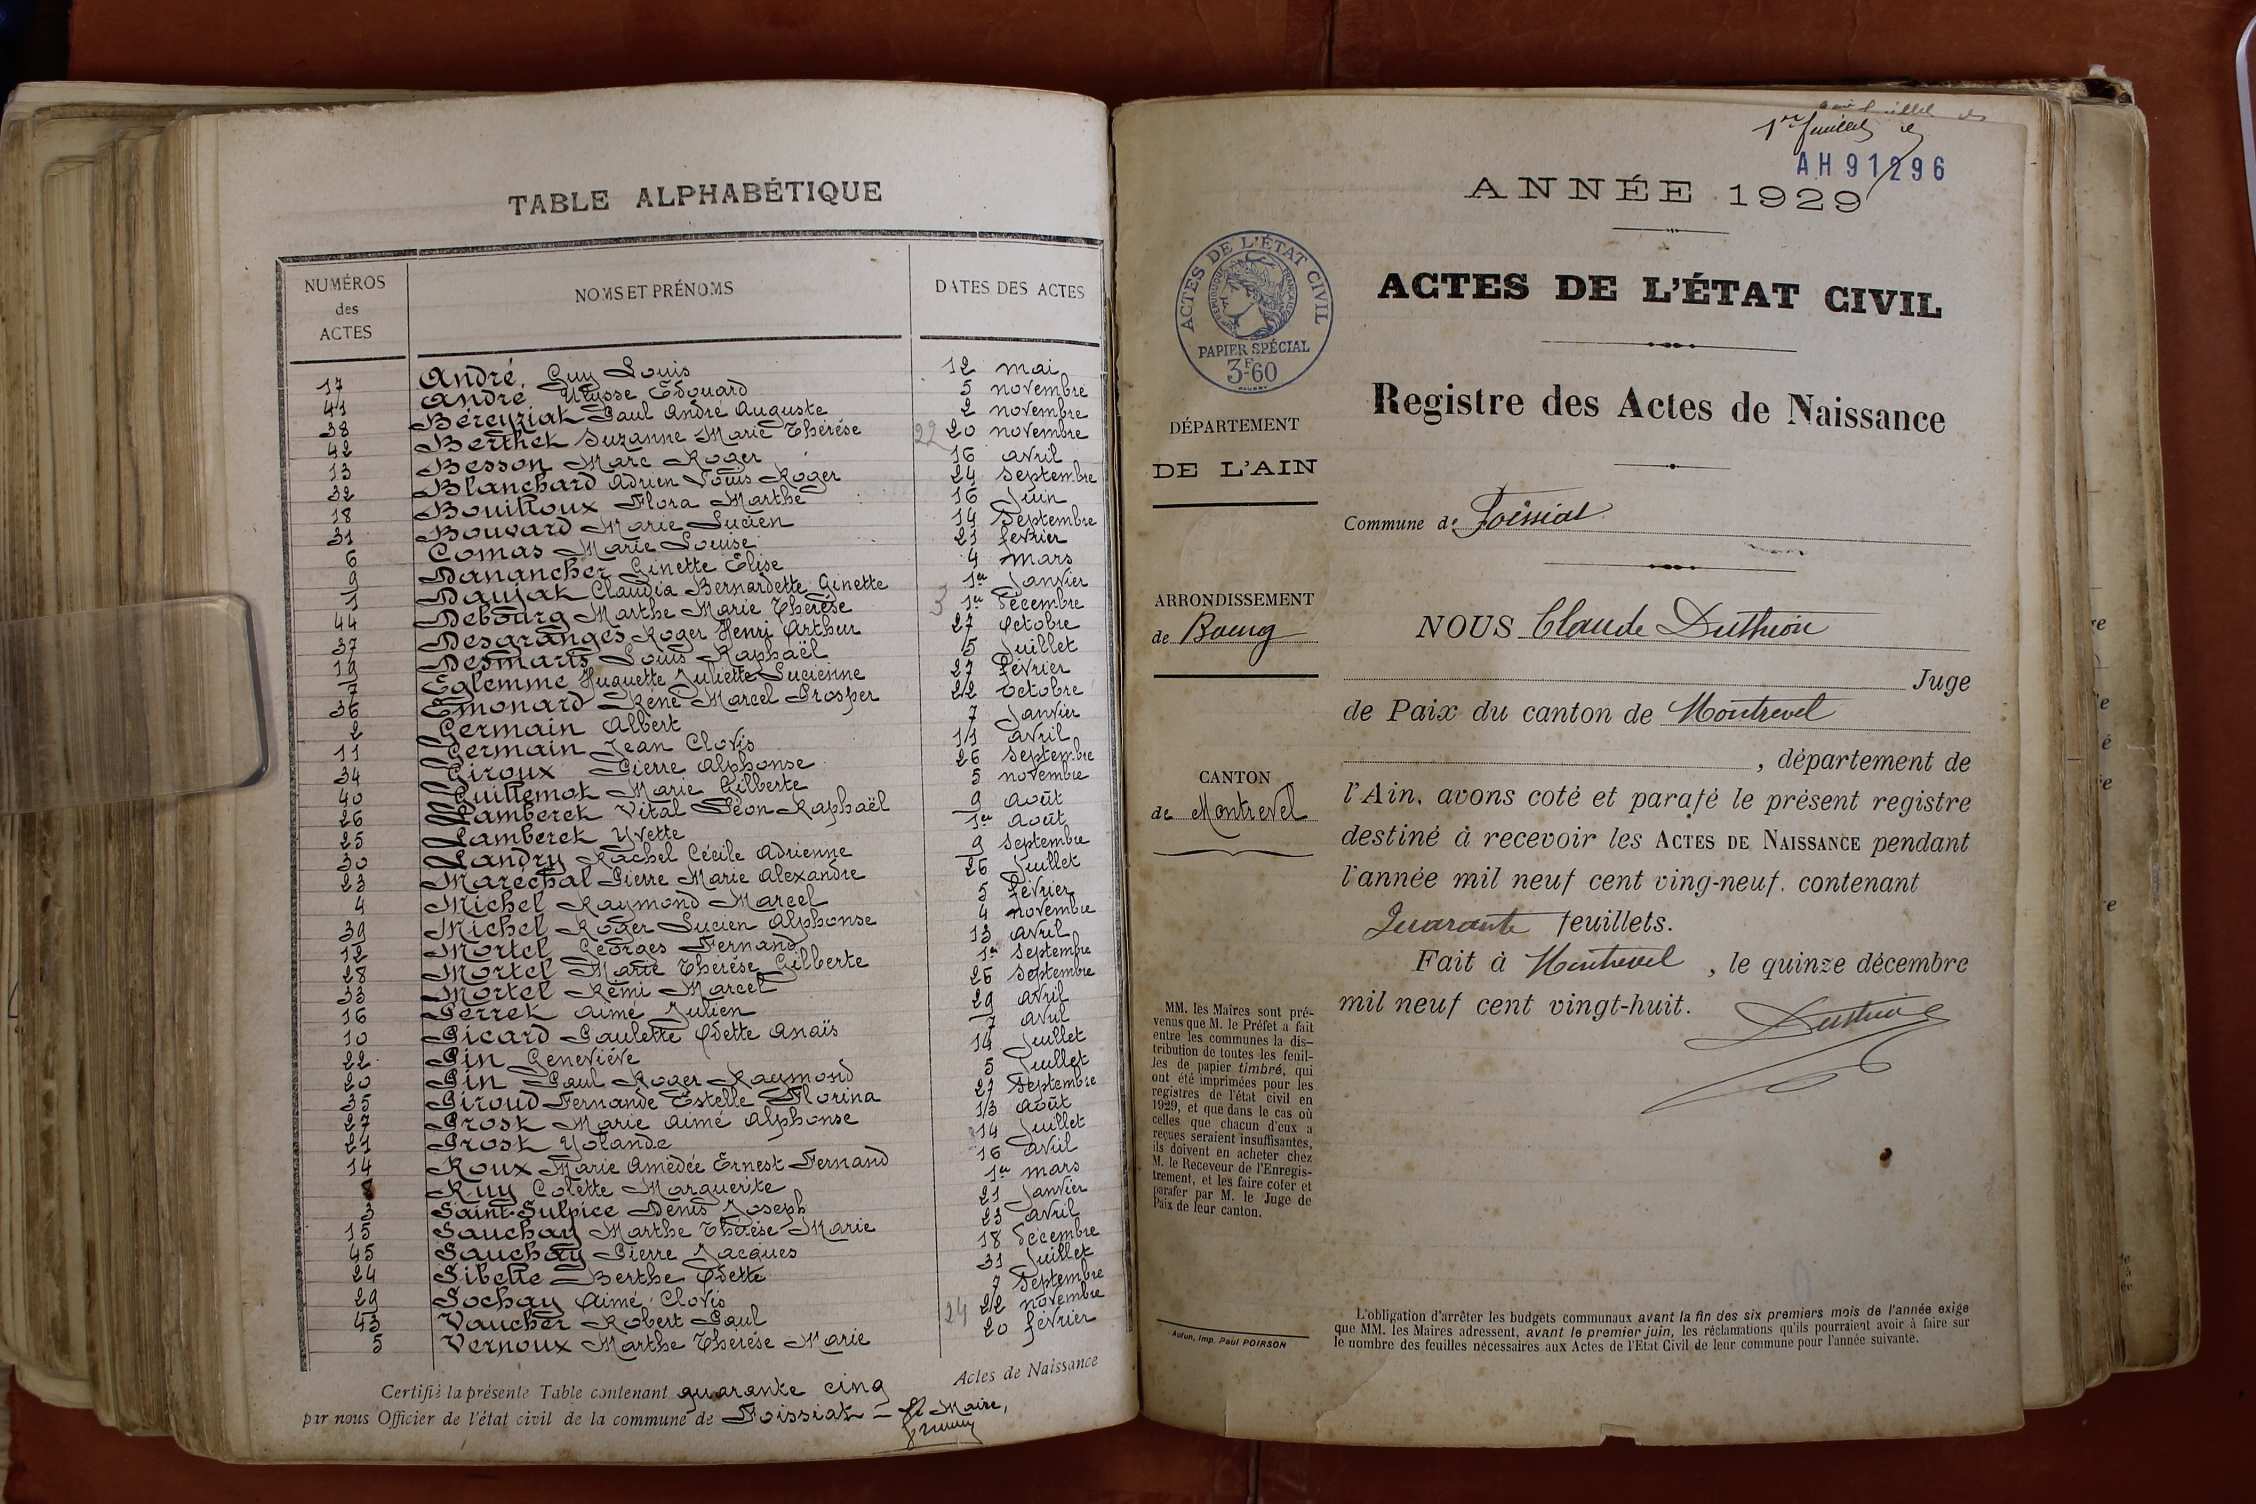 TABLE ALPHABÉTIQUE
NUMÉROS des ACTES NOMS ET PRÉNOMS DATES DES ACTES
17 André, Guy Louis 12 mai
41 André Ulysse Edouard 5 novembre
38 Béreyziat Paul André Auguste 2 novembre
42 Berthet Suzanne Marie Thérése 22 20 novembre
13 Besson Marc Roger 16 avril
32 Blanchard Adrien Louis Roger 24 septembre
18 Bouilloux Flora Marthe 16 Juin
31 Bouvard Marie Lucien 14 Septembre
6 Comas Marie Louise 21 fevrier
9 Danancher Ginette Elise 4 mars
1 Daujat Claudia Bernardette Ginette 1er Janvier
44 Debourg Marthe Marie Thérèse 3 1er Décembre
37 Desgranges Roger Henri Arthur 27 Octobre
19 Desmaris Louis Raphaël 5 Juillet
7 Eglemme Huguette Juliette Lucienne 27 Février
36 Emonard Réné Marcel Prosper 22 Octobre
2 Germain Albert 7 Janvier
11 Germain Jean Clovis 11 avril
34 Giroux Pierre Alphonse 26 septembre
40 Guillemot Marie Gilberte 5 novembre
26 Lamberet Vital Léon Raphaël 9 août
25 Lamberet Yvette 1er août
30 Landry Rachel Cécile Adrienne 9 septembre
23 Maréchal Pierre Marie Alexandre 26 Juillet
4 Michel Raymond Marcel 5 Février
39 Michel Roger Lucien Alphonse 4 novembre
12 Mortel Georges Fernand 13 avril
28 Mortel Marie Thérèse Gilberte 1er septembre
33 Mortel Rémi Marcel 26 septembre
16 Perret Aimé Julien 29 avril
10 Picard Paulette Odette Anaïs 7 avril
22 Pin Geneviéve 14 Juillet
20 Pin Paul Roger Raymond 5 Juillet
35 Piroud Fernande Estelle Florina 27 Septembre
27 Prost Marie Aimé Alphonse 13 août
21 Prost Yolande 14 Juillet
14 Roux Marie Amédée Ernest Fernand 16 avril
8 Ruy Colette Marguerite 1er mars
3 Saint-Sulpice Denis Joseph 21 Janvier
15 Sauchay Marthe Thérèse Marie 23 avril
45 Sauchay Pierre Jacques 18 Décembre
24 Sibelle Berthe Odette 31 Juillet
29 Sochay Aimé Clovis 7 Septembre
43 Vaucher Robert Paul 24 22 novembre
5 Vernoux Marthe Thérése Marie 20 février
Certifié la présente Table contenant quarante cinq Actes de Naissance
par nous Officier de l'état civil de la commune de Foissiat - Le Maire,
1er feuillet
AH 91296
ANNÉE 1929
ACTES DE L'ÉTAT CIVIL
RÉPUBLIQUE FRANÇAISE
PAPIER SPÉCIAL
3F60
ACTES DE L'ÉTAT CIVIL
Registre des Actes de Naissance
DÉPARTEMENT
DE L'AIN
Commune de Foissiat
ARRONDISSEMENT
de Bourg
NOUS Claude Duthion
Juge
de Paix du canton de Montrevel
, département de
CANTON
de Montrevel
l'Ain, avons coté et parafé le présent registre
destiné à recevoir les ACTES DE NAISSANCE pendant
l'année mil neuf cent ving-neuf. contenant
Quarante feuillets.
Fait à Montrevel, le quinze décembre
mil neuf cent vingt-huit.
Duthion
MM. les Maires sont pré-
venus que M. le Préfet a fait
entre les communes la dis-
tribution de toutes les feuil-
les de papier timbré, qui
ont été imprimées pour les
registres de l'état civil en
1929, et que dans le cas où
celles que chacun d'eux a
reçues seraient insuffisantes,
ils doivent en acheter chez
M. le Receveur de l'Enregis-
trement, et les faire coter et
parafer par M. le Juge de
Paix de leur canton.
Autun, Imp. Paul POIRSON
L'obligation d'arrêter les budgets communaux avant la fin des six premiers mois de l'année exige
que MM. les Maires adressent, avant le premier juin, les réclamations qu'ils pourraient avoir à faire sur
le nombre des feuilles nécessaires aux Actes de l'Etat Civil de leur commune pour l'année suivante.